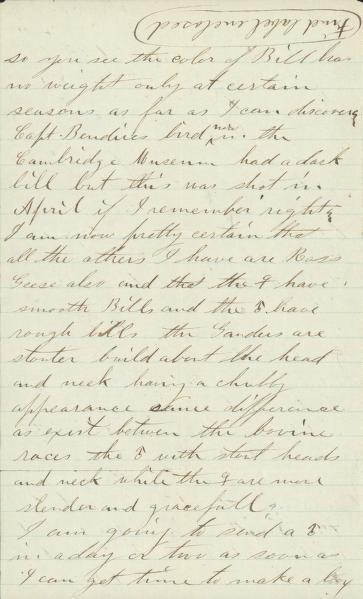 Find label enclosed
so you see the color of Bill has
no weight only at certain
seasons as far as I can discover
Capt. Bendires bird now in the
Cambridge Museum had a dark
bill but this was shot in
April if I remember rightly
I am now pretty certain that
all the others I have are Ross
Geese also and that the ♀ have
smooth Bills and the ♂ have
rough bills the Ganders are
stouter build about the head
and neck having a chubby
appearance same difference
as exist between the bovine
races the ♂ with stout heads
and neck while the ♀ are more
slender and gracefull
I am going to send a ♂
in a day or two as soon as
I can get time to make a box